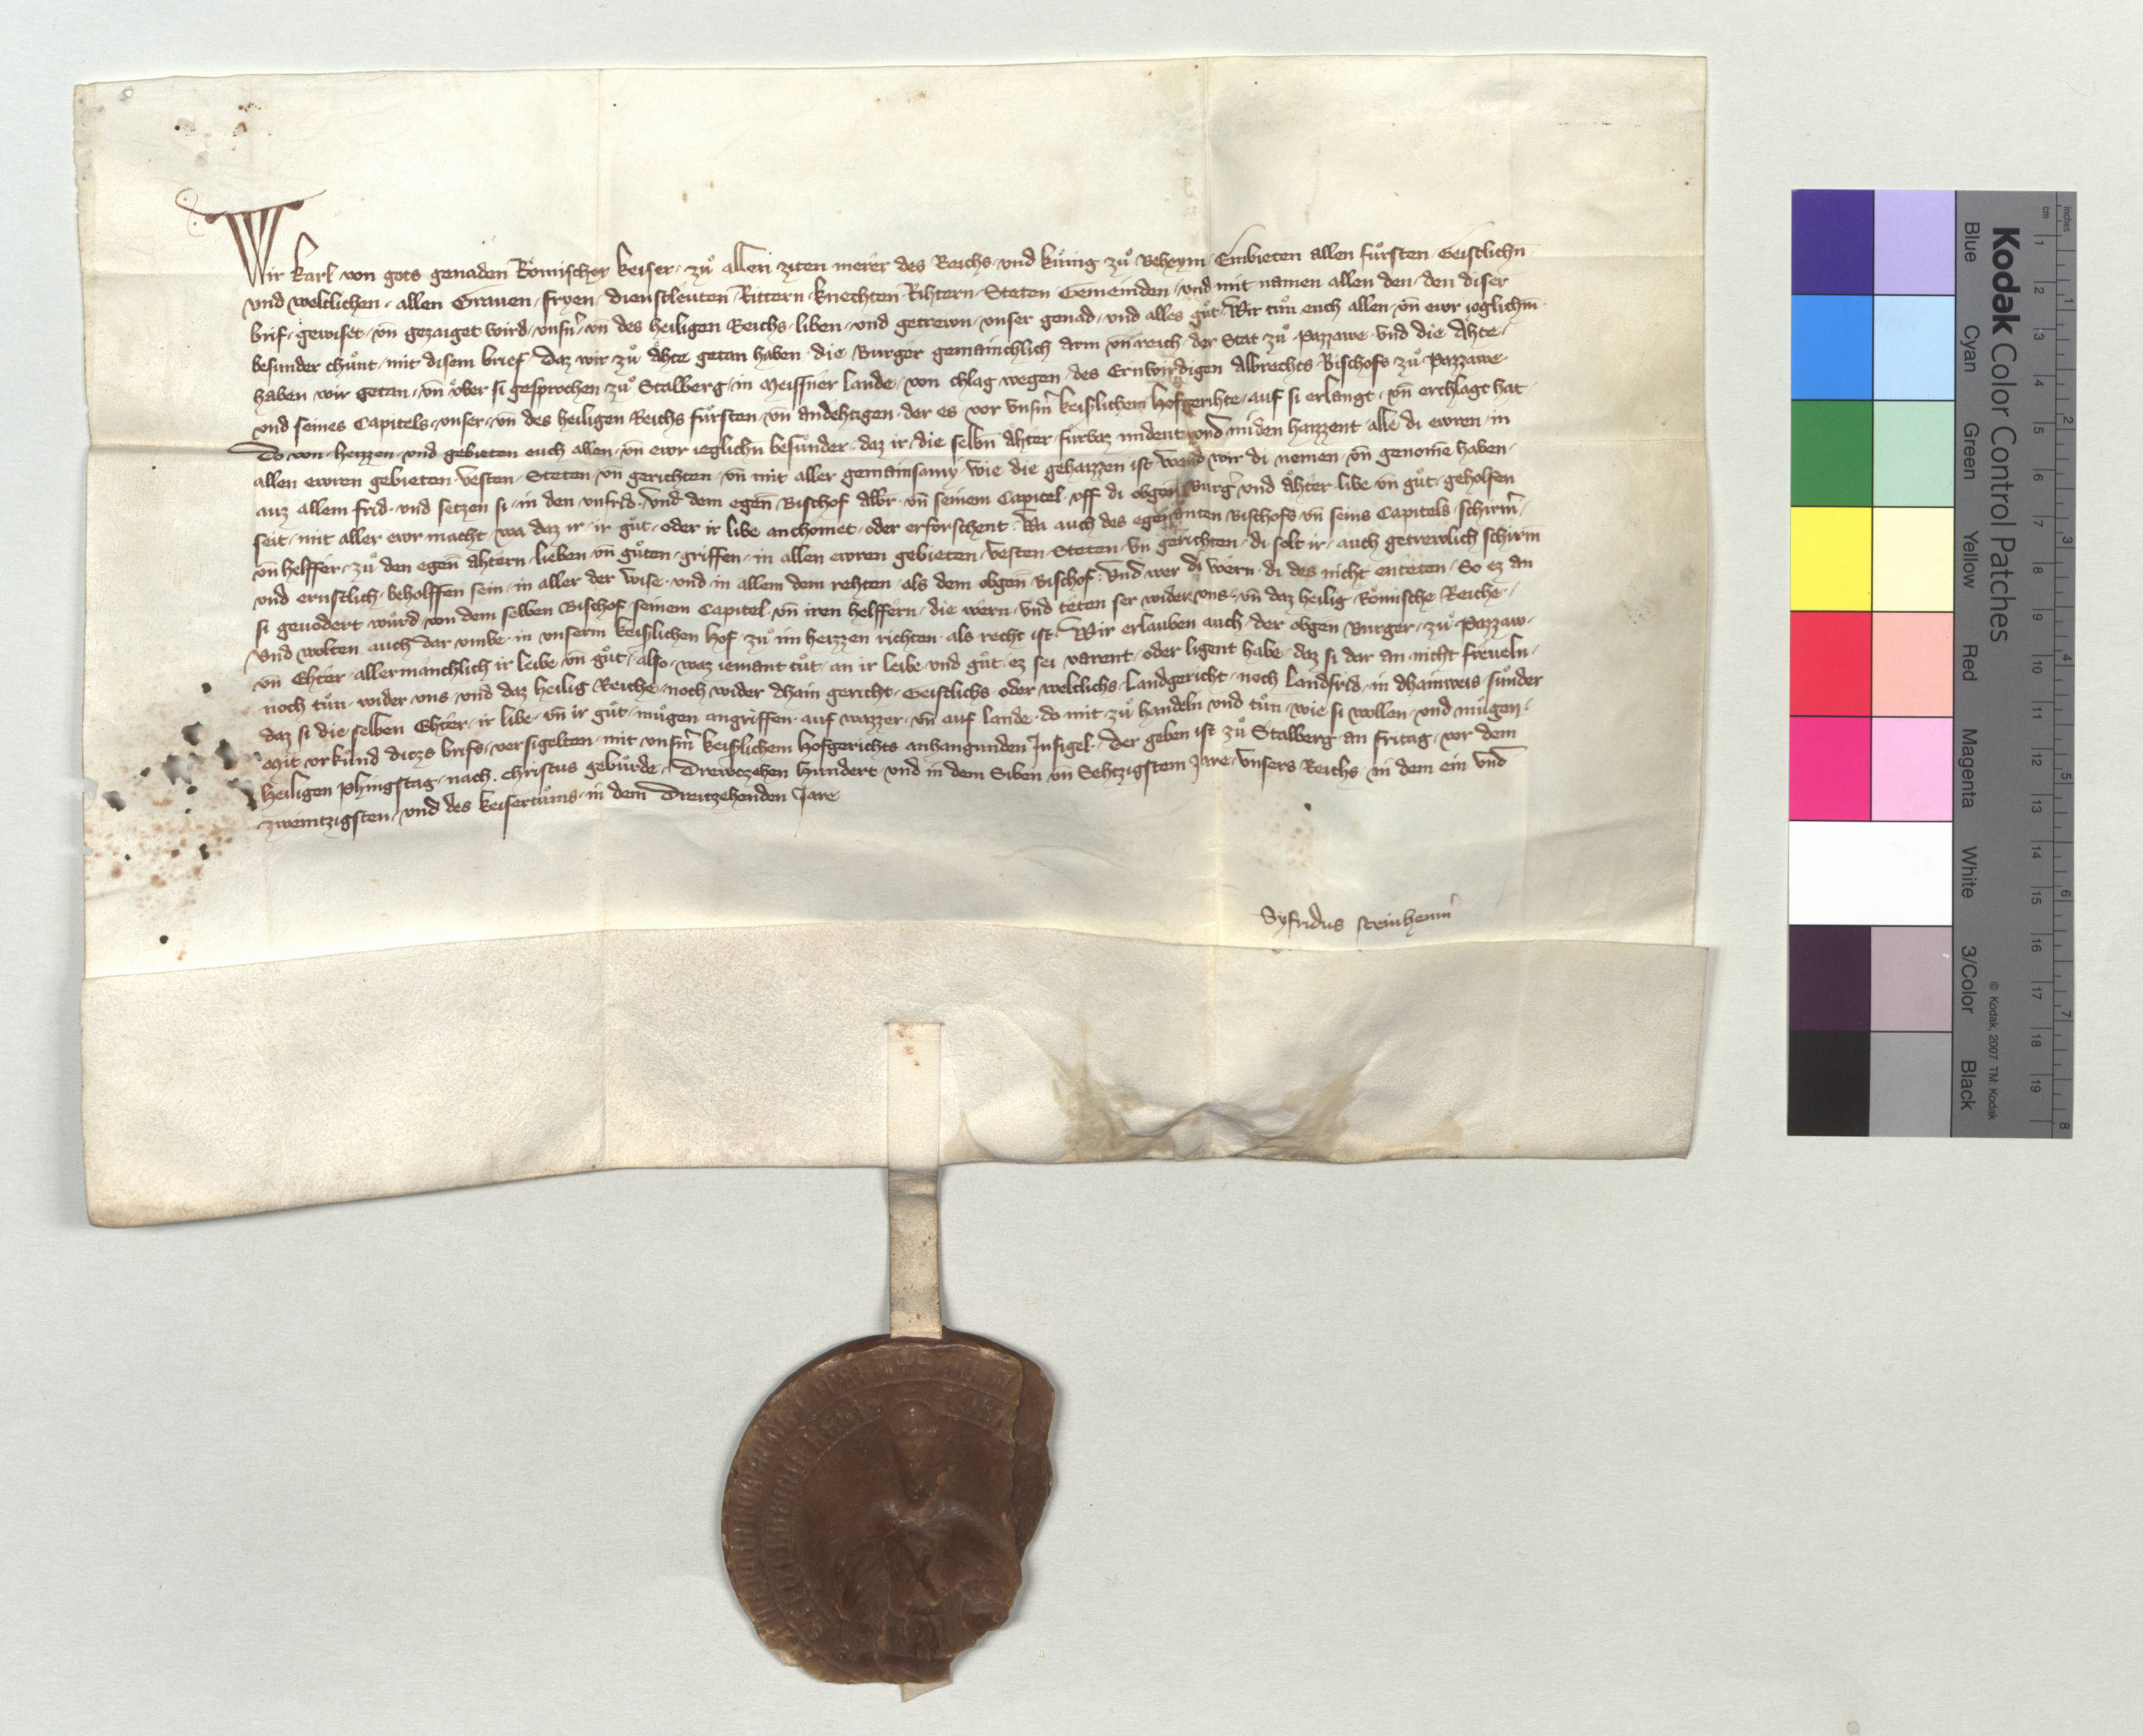 Wir Karl von gots genaden Romischer keiser zů allen ziten merer des Reichs und kúnig zů Beheym Embieten allen fúrsten Geistlichn̄
und weltlichen allen Grauen fryen dienstleuten Rittern knechten Rihtern Steten Gemeinden und mit namen allen den den diser
brif gewiset vn̄ gezaiget wird vnſn̄ vn̄ des heiligen Reichs liben und getrewn unser genad und alles gůt Wir tůn euch allen vn̄ ewr ieglichm̄
besunder chůnt mit disem brief Daz wir zů Ahte getan haben die Burger gemainchlich arm vn̄ reich der Stat zů Pazzawe und die Ahte
haben wir getan vn̄ über si gesprochen zů Stalberg in Meissner lande von chlag wegen des Erwirdigen Albrechts Bischofs zů Pazzawe
und seines Capitels unser vn̄ des heiligen Reichs fürsten vn̄ andehtigen der es vor unsm̄ keiſlichem hofgerihte auf si erlangt vn̄ erchlagt hat
Do von heizzen und gebieten euch allen vn̄ ewr ieglichn̄ besunder daz ir die selbn̄ ahter fürbaz mident und miden haizzent alle di ewren in
allen ewren gebieten Vesten Steten vn̄ gerichten vn̄ mit aller gemainsamy wie die gehaizzen ist wand wir di nemen vn̄ genomē haben
auz allem frid und setzen si in den unfrid und dem egen̄ Bischof Albr vn̄ seinem Capitel vff di obgen̄ Burḡ und ahter libe vn̄ gůt geholfen
seit mit aller ewr macht wa daz ir ir gůt oder ir libe anchomet oder erforschent Wa auch des egenanten Bischofs vn̄ seins Capitels schirm̄
vn̄ helffer zů den egen̄ ahtern lieben vn̄ gůten griffen in allen ewren gebieten Vesten Steten vn̄ gerichten di solt ir auch getrewlich schirm̄
und ernstlich beholffen sein in aller der wise und in allem dem rehten als dem obgen̄ Bischof Und wer di wern di des nicht enteten So ez an
si geuodert würd von dem selben Bischof seinem Capitel vn̄ iren helffern die wern und teten ser wider uns vn̄ daz heilig Romische Reiche
Und wolten auch dar umbe in unserm keiſlichen hof zů im heizzen richten als recht ist Wir erlauben auch der obgen Burger zů Pazzaw
vn̄ Ehter allermanchlich ir leibe vn̄ gůt also waz iemant tůt an ir leibe und gůt ez sei varent oder ligent habe daz si dar an nicht freueln
noch tůn wider uns und daz heilig Reiche noch wider dhain gericht Geistlichs oder weltlichs Landgericht noch Landfrid in dhainweis sunder
daz si die selben Ehter ir libe vn̄ ir gůt mügen angriffen auf wazzer vn̄ auf lande do mit zů handeln und tůn wie si wollen und mügen
Mit urkünd diczs brifs versigelten mit unsm̄ keiſlichem hofgerichts anhangunden Insigel Der geben ist zů Stalberg an fritag vor dem
heiligen Phingstag nach Christus gebürde Drewczehen hundert und in dem Siben vn̄ Sehtzigstem Jare Unsers Reichs in dem ein und
zweintzigsten und des keisertůms in dem Drewtzehenden Jare
Syfridus Steinheim̄
Kodak Color Control Patches
© Kodak, 2007 TM: Kodak
Blue Cyan Green Yellow Red Magenta White 3/Color Black
cm 1 2 3 4 5 6 7 8 9 10 11 12 13 14 15 16 17 18 19
inches 1 2 3 4 5 6 7 8